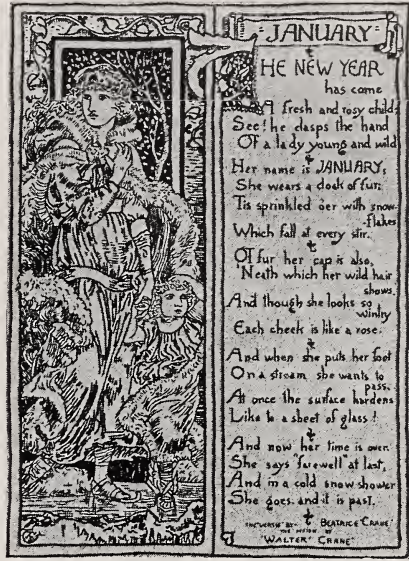 JANUARY
THE NEW YEAR
has come
A fresh and rosy child;
See! he clasps the hand
Of a lady young and wild
Her name is JANUARY;
She wears a cloak of fur;
Tis sprinkled o'er with snow-
flakes
Which fall at every stir.
Of fur her cap is also,
Neath which her wild hair
shows.
And though she looks so
wintry
Each cheek is like a rose.
And when she puts her foot
On a stream she wants to
pass,
At once the surface hardens
Like to a sheet of glass!
And now her time is over.
She says "farewell" at last,
And in a cold snow shower
She goes, and it is past.
THE VERSE BY BEATRICE CRANE.
THE DESIGN BY
WALTER CRANE